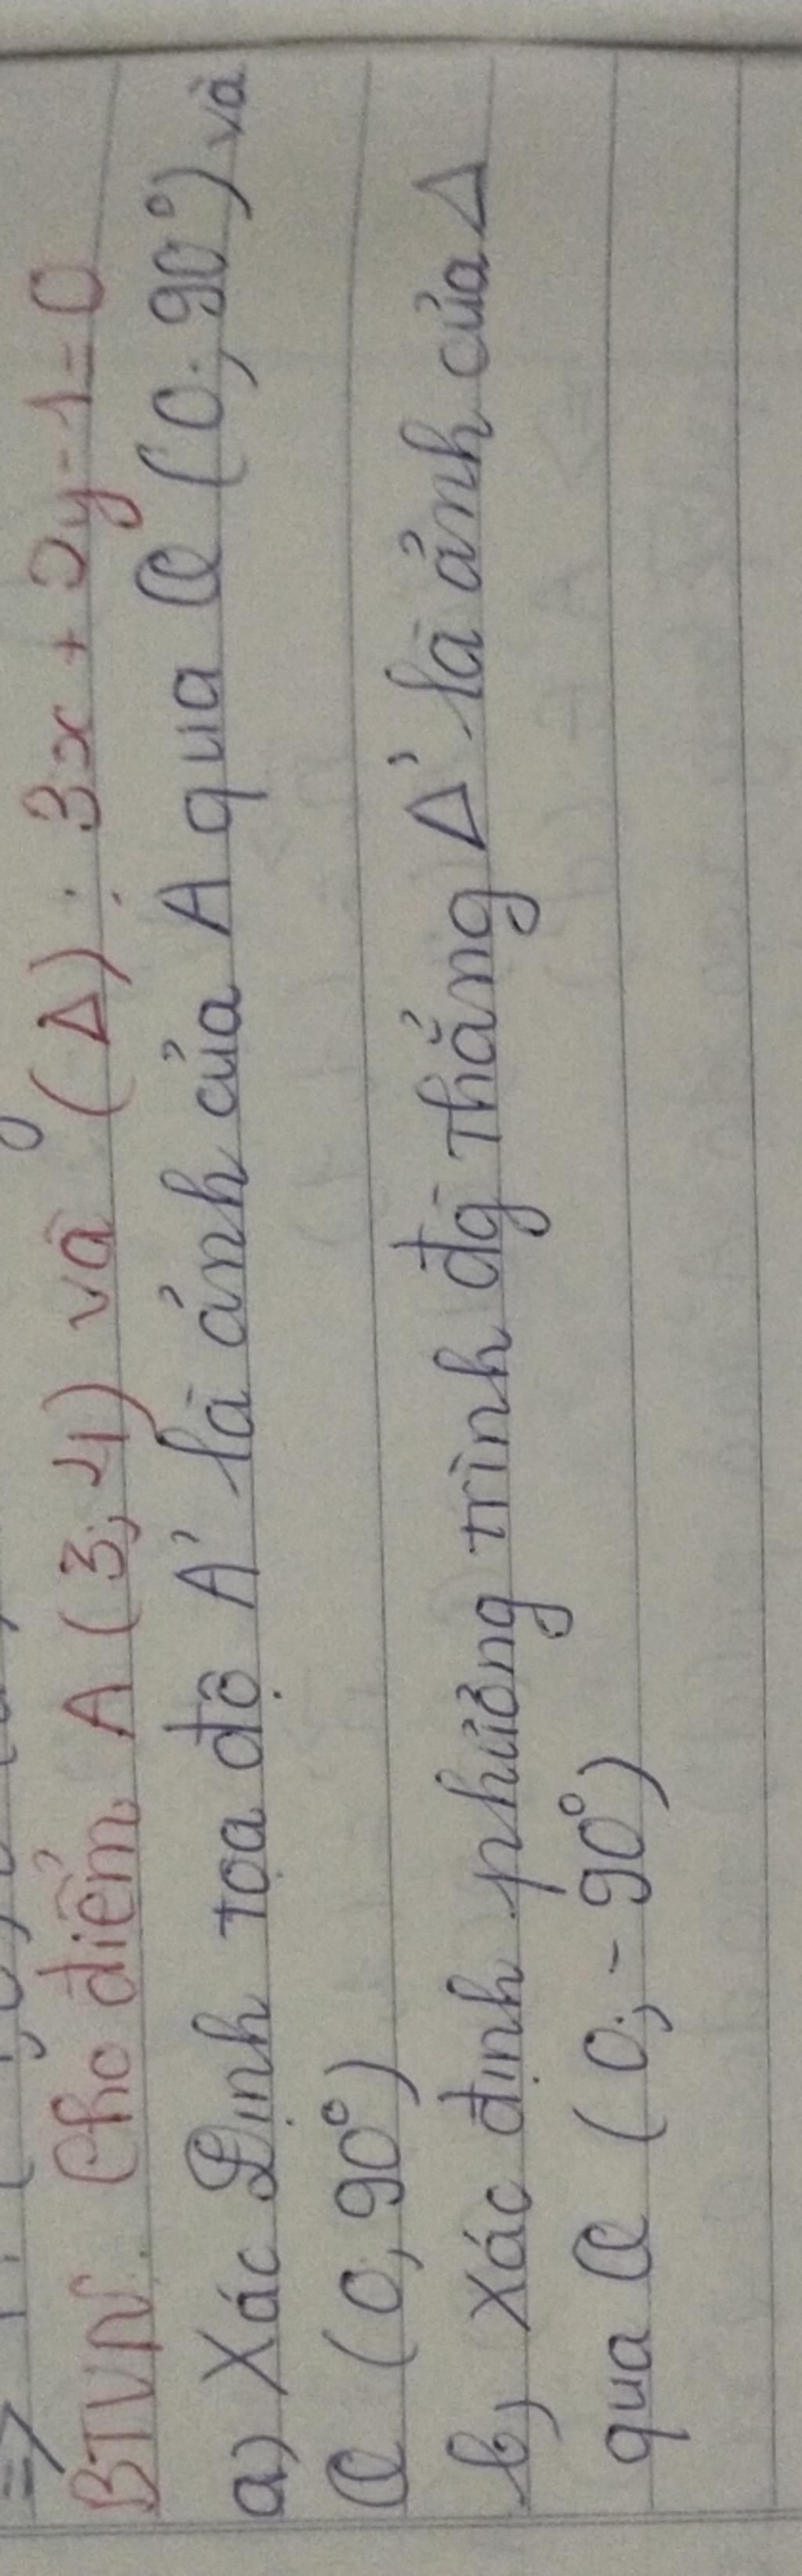 BTVN. Cho điểm A (3; 4) và (Δ): 3x + 2y - 1 = 0
a) Xác Định tọa độ A' là ảnh của A qua Q (O; 90°) và
Q (O, 90°)
b, Xác định phương trình đg thẳng Δ' là ảnh của Δ
qua Q (O; - 90°)